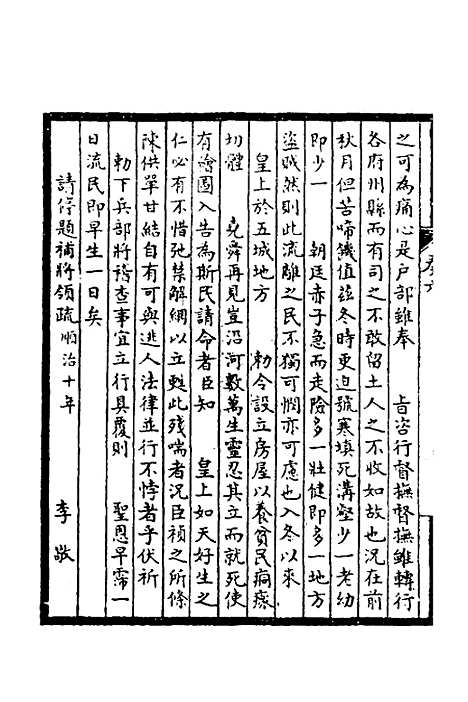 之可為痛心是戶部雖奉　旨咨行督撫督撫雖轉行
各府州縣而有司之不敢留土人之不收如故也況在前
秋月但苦啼饑值茲冬時更迫號寒填死溝壑少一老幼
即少一　朝廷赤子急而走險多一壯健即多一地方
盜賊然則此流離之民不獨可憫亦可慮也入冬以來
皇上於五城地方　勅令設立房屋以養貧民痌瘝
切體　堯舜再見豈沿河數萬生靈忍其立而就死使
有繪圖入告為斯民請命者臣知　皇上如天好生之
仁必有不惜弛禁解網以立甦此殘喘者況臣禎之所條
陳供單甘結自有可與逃人法律並行不悖者乎伏祈
勅下兵部將稽查事宜立行具覆則　聖恩早霈一
日流民即早生一日矣
請停題補將領疏順治十年　李敬